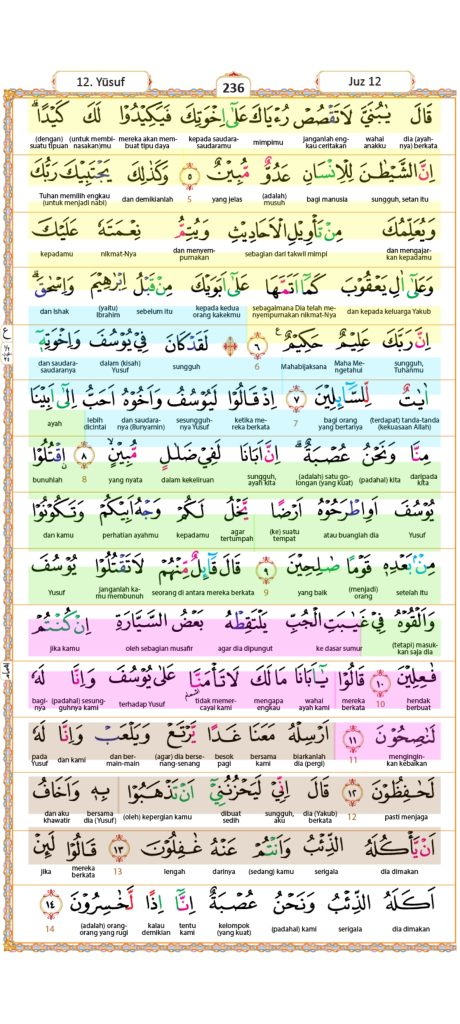 12. Yūsuf
236
Juz 12
قَالَ يٰبُنَيَّ لَا تَقْصُصْ رُءْيَاكَ عَلٰٓى اِخْوَتِكَ فَيَكِيْدُوْا لَكَ كَيْدًاۗ
dia (ayahnya) berkata wahai anakku janganlah engkau ceritakan mimpimu kepada saudara-saudaramu mereka akan membuat tipu daya (untuk membinasakan)mu (dengan) suatu tipuan
اِنَّ الشَّيْطٰنَ لِلْاِنْسَانِ عَدُوٌّ مُّبِيْنٌ ٥ وَكَذٰلِكَ يَجْتَبِيْكَ رَبُّكَ
sungguh, setan itu bagi manusia (adalah) musuh yang jelas 5 dan demikianlah Tuhan memilih engkau (untuk menjadi nabi)
وَيُعَلِّمُكَ مِنْ تَأْوِيْلِ الْاَحَادِيْثِ وَيُتِمُّ نِعْمَتَهٗ عَلَيْكَ
dan mengajarkan kepadamu sebagian dari takwil mimpi dan menyempurnakan nikmat-Nya kepadamu
وَعَلٰٓى اٰلِ يَعْقُوْبَ كَمَآ اَتَمَّهَا عَلٰٓى اَبَوَيْكَ مِنْ قَبْلُ اِبْرٰهِيْمَ وَاِسْحٰقَۗ
dan kepada keluarga Yakub sebagaimana Dia telah menyempurnakan nikmat-Nya kepada kedua orang kakekmu sebelum itu (yaitu) Ibrahim dan Ishak
اِنَّ رَبَّكَ عَلِيْمٌ حَكِيْمٌ ࣖ ٦ لَقَدْ كَانَ فِيْ يُوْسُفَ وَاِخْوَتِهٖٓ
sungguh, Tuhanmu Maha Mengetahui Mahabijaksana 6 sungguh dalam (kisah) Yusuf dan saudara-saudaranya
اٰيٰتٌ لِّلسَّاۤىِٕلِيْنَ ٧ اِذْ قَالُوْا لَيُوْسُفُ وَاَخُوْهُ اَحَبُّ اِلٰٓى اَبِيْنَا
(terdapat) tanda-tanda (kekuasaan Allah) bagi orang yang bertanya 7 ketika mereka berkata sesungguhnya Yusuf dan saudaranya (Bunyamin) lebih dicintai ayah
مِنَّا وَنَحْنُ عُصْبَةٌۗ اِنَّ اَبَانَا لَفِيْ ضَلٰلٍ مُّبِيْنٍۙ ٨ اقْتُلُوْا
daripada kita (padahal) kita (adalah) satu golongan (yang kuat) sungguh, ayah kita dalam kekeliruan yang nyata 8 bunuhlah
يُوْسُفَ اَوِ اطْرَحُوْهُ اَرْضًا يَّخْلُ لَكُمْ وَجْهُ اَبِيْكُمْ وَتَكُوْنُوْا
Yusuf atau buanglah dia (ke) suatu tempat agar tertumpah kepadamu perhatian ayahmu dan kamu
مِنْۢ بَعْدِهٖ قَوْمًا صٰلِحِيْنَ ٩ قَالَ قَاۤىِٕلٌ مِّنْهُمْ لَا تَقْتُلُوْا يُوْسُفَ
setelah itu (menjadi) orang yang baik 9 seorang di antara mereka berkata janganlah kamu membunuh Yusuf
وَاَلْقُوْهُ فِيْ غَيٰبَتِ الْجُبِّ يَلْتَقِطْهُ بَعْضُ السَّيَّارَةِ اِنْ كُنْتُمْ
(tetapi) masukkan saja dia ke dasar sumur agar dia dipungut oleh sebagian musafir jika kamu
فٰعِلِيْنَ ١٠ قَالُوْا يٰٓاَبَانَا مَا لَكَ لَا تَأْمَنَّ۫ا عَلٰى يُوْسُفَ وَاِنَّا لَهٗ
hendak berbuat 10 mereka berkata wahai ayah kami mengapa engkau tidak mempercayai kami terhadap Yusuf (padahal) sesungguhnya kami baginya
لَنٰصِحُوْنَ ١١ اَرْسِلْهُ مَعَنَا غَدًا يَّرْتَعْ وَيَلْعَبْ وَاِنَّا لَهٗ
menginginkan kebaikan 11 biarkanlah dia (pergi) bersama kami besok pagi (agar) dia bersenang-senang dan bermain-main dan kami pada Yusuf
لَحٰفِظُوْنَ ١٢ قَالَ اِنِّيْ لَيَحْزُنُنِيْٓ اَنْ تَذْهَبُوْا بِهٖ وَاَخَافُ
pasti menjaga 12 dia (Yakub) berkata sungguh, aku dibuat sedih (oleh) kepergian kamu bersama dia (Yusuf) dan aku khawatir
اَنْ يَّأْكُلَهُ الذِّئْبُ وَاَنْتُمْ عَنْهُ غٰفِلُوْنَ ١٣ قَالُوْا لَىِٕنْ
dia dimakan serigala (sedang) kamu darinya lengah 13 mereka berkata jika
اَكَلَهُ الذِّئْبُ وَنَحْنُ عُصْبَةٌ اِنَّآ اِذًا لَّخٰسِرُوْنَ ١٤
dia dimakan serigala (padahal) kami kelompok (yang kuat) tentu kami kalau demikian (adalah) orang-orang yang rugi 14